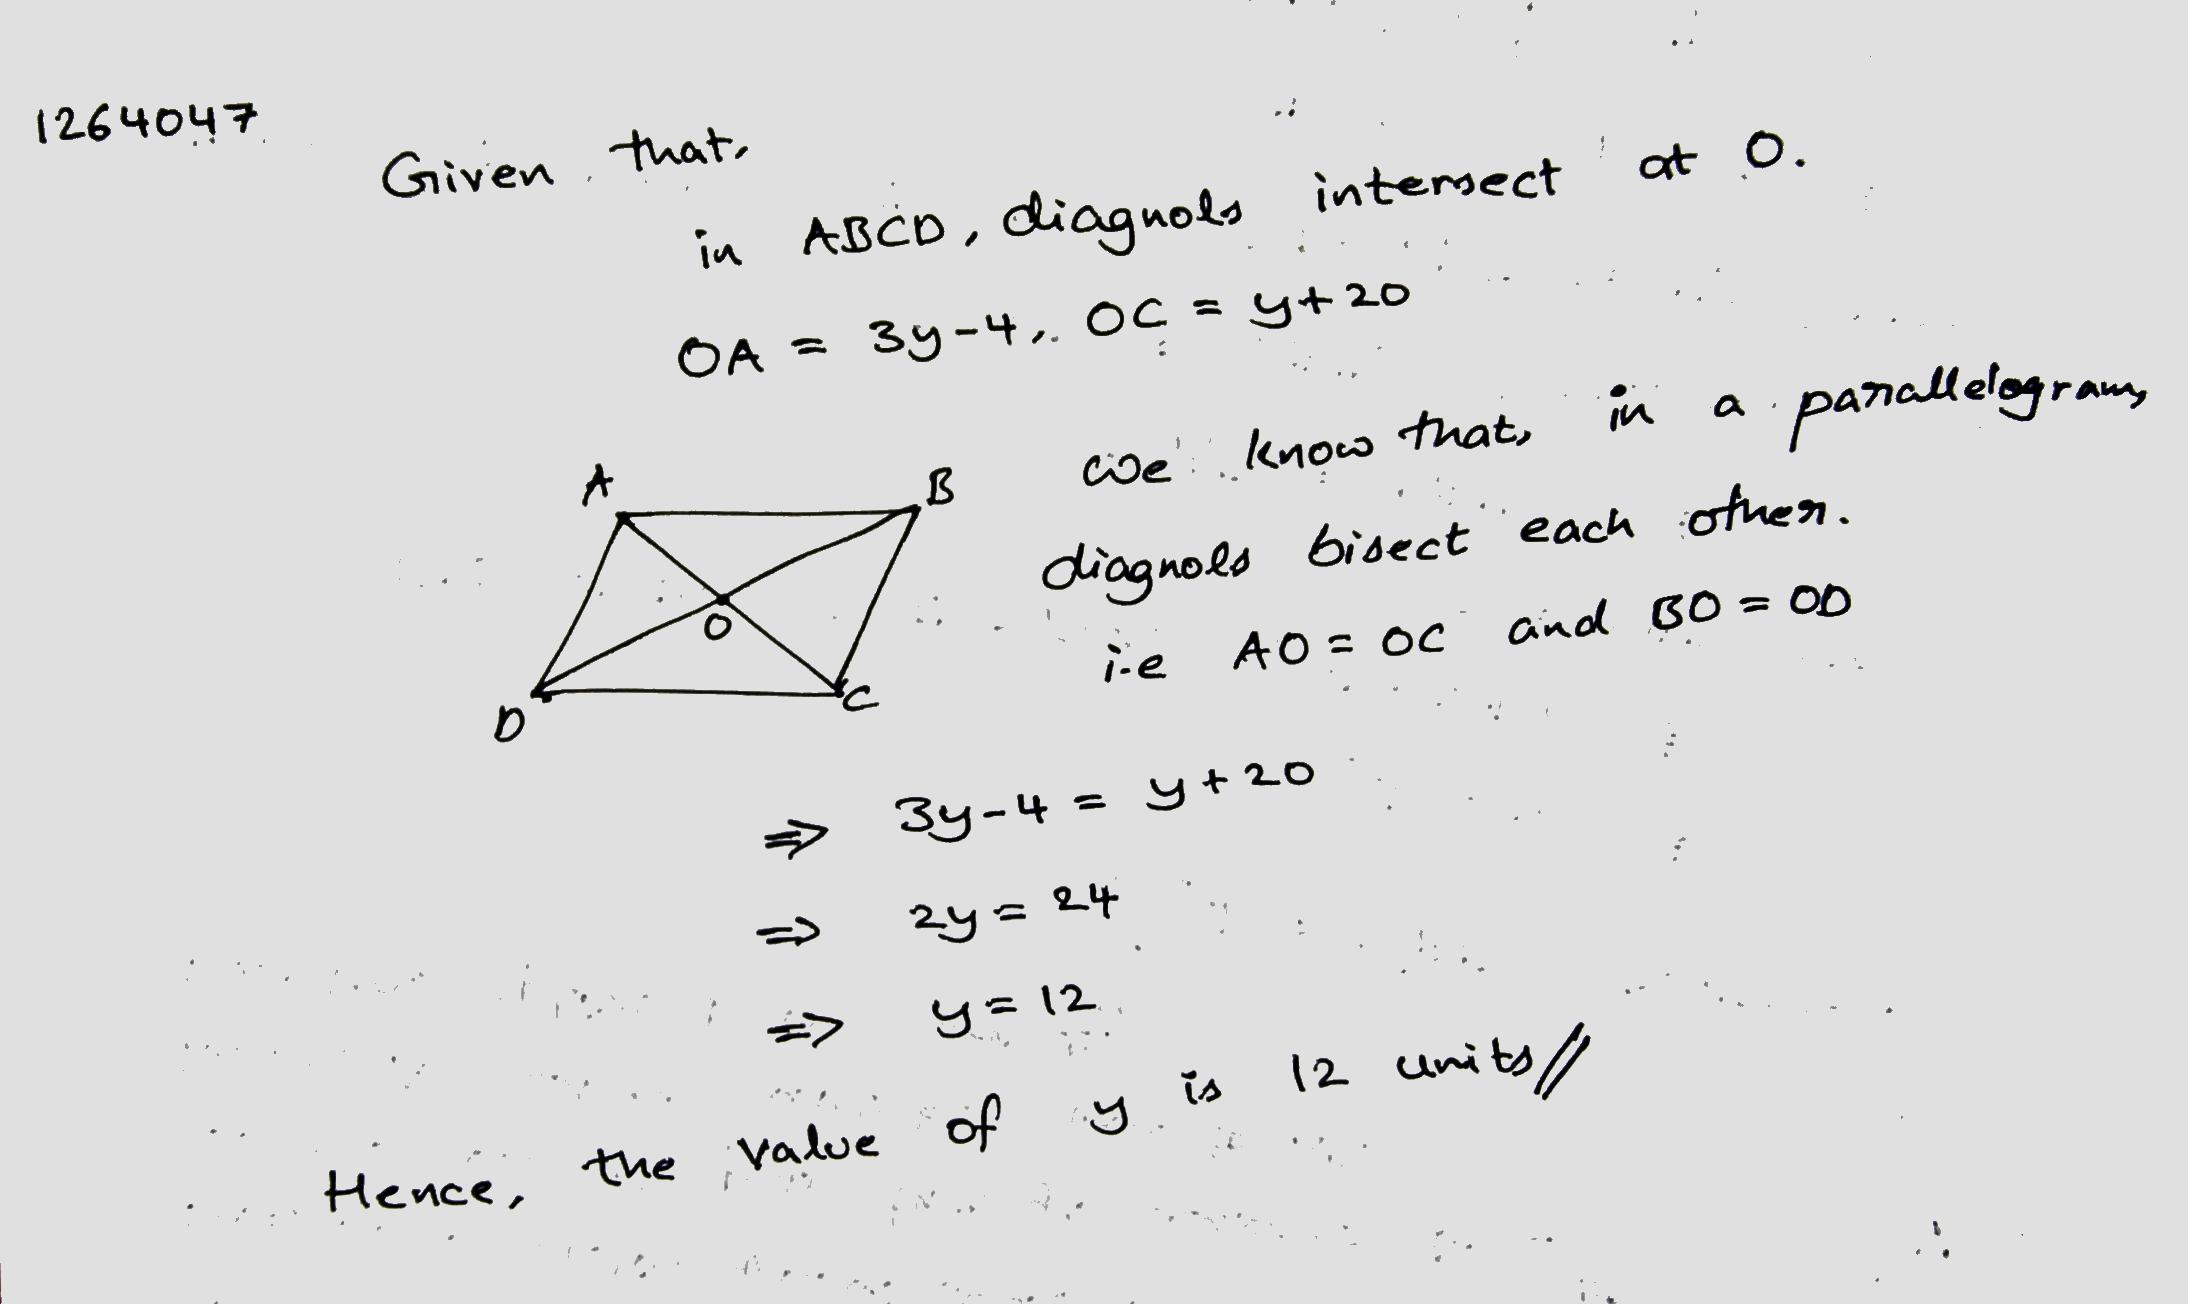 1264047
Given that,
in ABCD, diagnols intersect at O.
OA = 3y-4, OC = y+20
A
B
we know that, in a parallelogram,
diagnols bisect each other.
O
i.e AO = OC and BO = OD
D
C
⇒ 3y-4 = y+20
⇒ 2y = 24
⇒ y = 12
Hence, the value of y is 12 units//